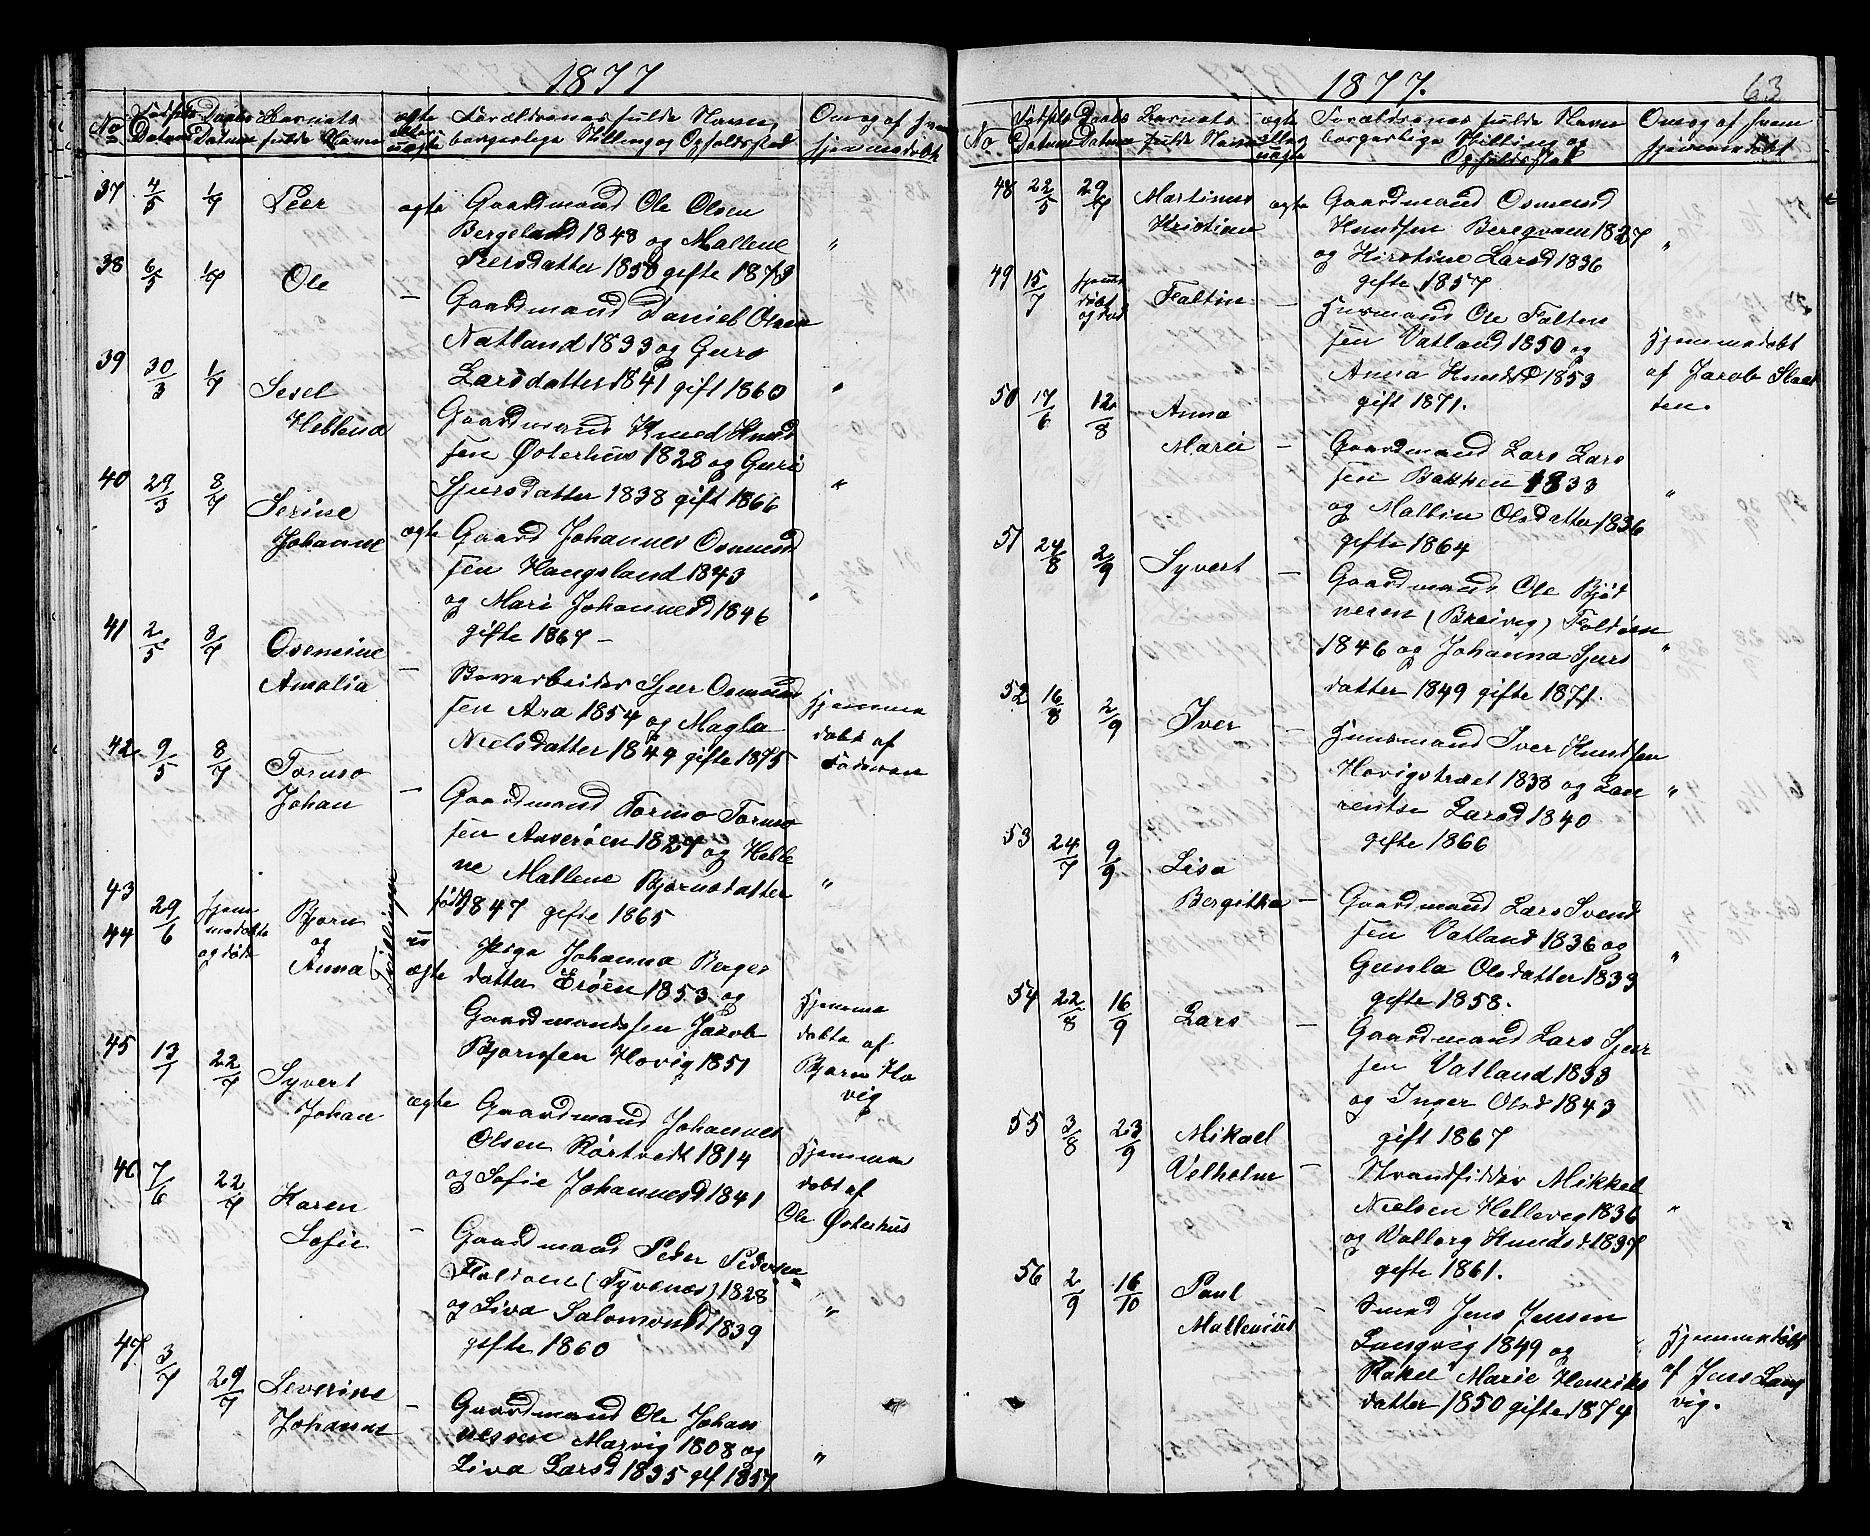 1877
No
Fødsels Datum
Daabs Datum
Barnets fulde Navn
ægte eller uægte
Forældrenes fulde Navn, borgerlige Stilling og Opholdssted
Om og af hvem hjemmedøbt
37 4/5 1/7 Peer ægte Gaardmand Ole Olsen
Bergeland 1848 og Mallene
Peersdatter 1850 gifte 1873 "
38 6/5 1/7 Ole – Gaardmand Daniel Olsen
Natland 1833 og Guro
Larsdatter 1841 gift 1860 "
39 30/3 1/7 Sesel
Hellena Gaardmand Knud Knud
sen Østerhus 1828 og Guri
Sjursdatter 1838 gift 1866 "
40 29/3 8/7 Serine
Johanne ægte Gaard Johannes Osmund
sen Haugsland 1843
og Mari Johannesd 1846 "
gifte 1867 –
41 2/5 8/7 Osmine
Amalia – Sjur Osmund
sen Ara 1854 og Magla
Nielsdatter 1844 gifte 1875
Hjemme
døbt af
Faderen
42 9/5 8/7 Tormo
Johan – Gaardmand Tormo Tormo
sen Asserøen 1827 og Helle
ne Mallene Bjørnsdatter "
født 1847 gifte 1865
43
44 29/6 hjem
medøbte
og døde
Bjørn
og
Anna Tvillinger
uægte Pige Johanna Berges
datter Erøen 1853 og
Gaardmandssøn Jacob
Bjørnsen Hovig 1851
Hjemme
døbte af
Bjørn Ho
vig
45 13/7 22/7 Syvert
Johan ægte Gaardmand Johannes
Olsen Rørtvedt 1814
og Sofie Johannesd. 1841
Hjemme
døbt af
Ole Østerhus
46 7/6 22/7 Karen
Sofie – Gaardmand Peder Peders
Foldøen (Tyvenæs) 1828
og Liva Salomonsd 1839 "
gifte 1860
47 3/7 29/7 Severine
Johanne – Gaardmand Ole Johan
nessen Marvig 1808 og
Liva Larsd 1835 gif 1857 "
1877.
63
No
Fødsels Datum
Daabs Datum
Barnets fulde Navn
ægte eller uægte
Forældrenes fulde Navn borgerlige Stilling og Opholdsted
Om og af hvem hjemmedøbt
48 22/5 29/7 Martinus
Kristian ægte Gaardmand Osmund
Knudsen Bergvam 1827 "
og Kirstine Larsd 1836
gifte 1857
49 15/7 hjemme
døbt
og død
Faltin – Husmand Ole Falten
sen Vatland 1850 og
Anna Knudsd 1853
gift 1871.
Hjemmedøbt
af Jacob Slaat
ten.
50 17/6 12/8 Anna
Marie – Gaardmand Lars Lars
sen Bakken 1833
og Mallin Olsdatter 1836 "
gifte 1864
51 24/8 2/9 Syvert – Gaardmand Ole Bjød
neren (Breivig) Foldøen
1846 og Johanna Sjurs "
datter 1849 gifte 1871.
52 16/8 2/9 Iver – Huusmand Iver Knudsen
Hovigstræet 1838 og Lau "
rentse Larsd 1840
gifte 1866
53 24/7 9/9 Lisa
Bergitha – Gaardmand Lars Svend
sen Vatland 1836 og
Gunla Olsdatter 1833 "
gifte 1858.
54 22/8 16/9 Lars – Gaardmand Lars Sjur
sen Vatland 1833
og Inger Olsd 1843
gift 1867
55 3/8 23/9 Mikael
Velhelm – Strandsidder Mikkel
Nielsen Hellevig 1836 "
og Valborg Knudsd. 1837
gifte 1861.
56 2/9 16/10 Paul
Mallenius – Smed Jens Jensen
Langvig 1849 og
Rakel Marie Henriks
datter 1850 gifte 1874
Hjemmedøbt
af Jens Lang
vig.